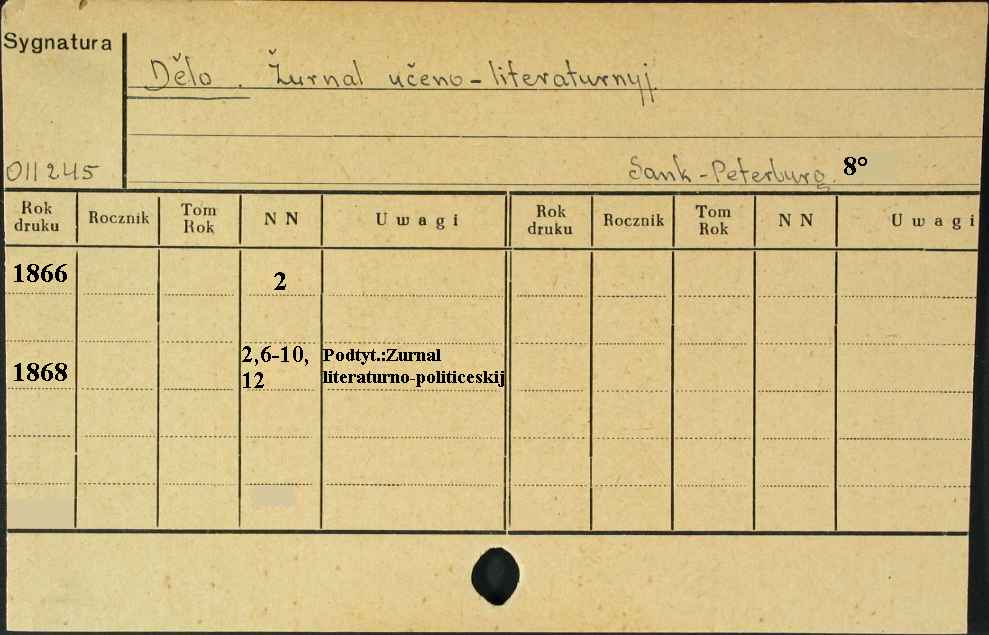 Sygnatura
Dělo. Žurnal učeno-literaturnyj.
011245
Sank-Peterburg. 8°
Rok druku Rocznik Tom Rok N N Uwagi Rok druku Rocznik Tom Rok N N Uwagi
1866 2
1868 2,6-10, 12 Podtyt.:Zurnal literaturno-politiceskij